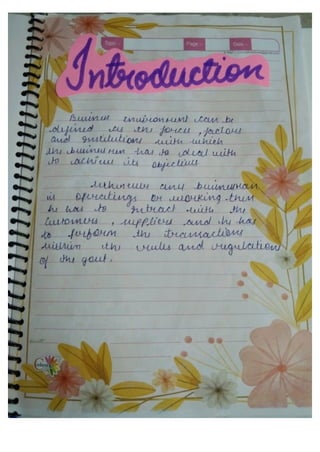 Topic :-
Page :-
Date :-
Introduction
Business environment can be
defined as the forces, factors
and institutions with which
the businessman has to deal with
to achieve its objectives
Whenever any businessman
is operating or working then
he has to intract with the
customers, suppliers and he has
to perform the transactions
within the rules and regulations
of the govt.